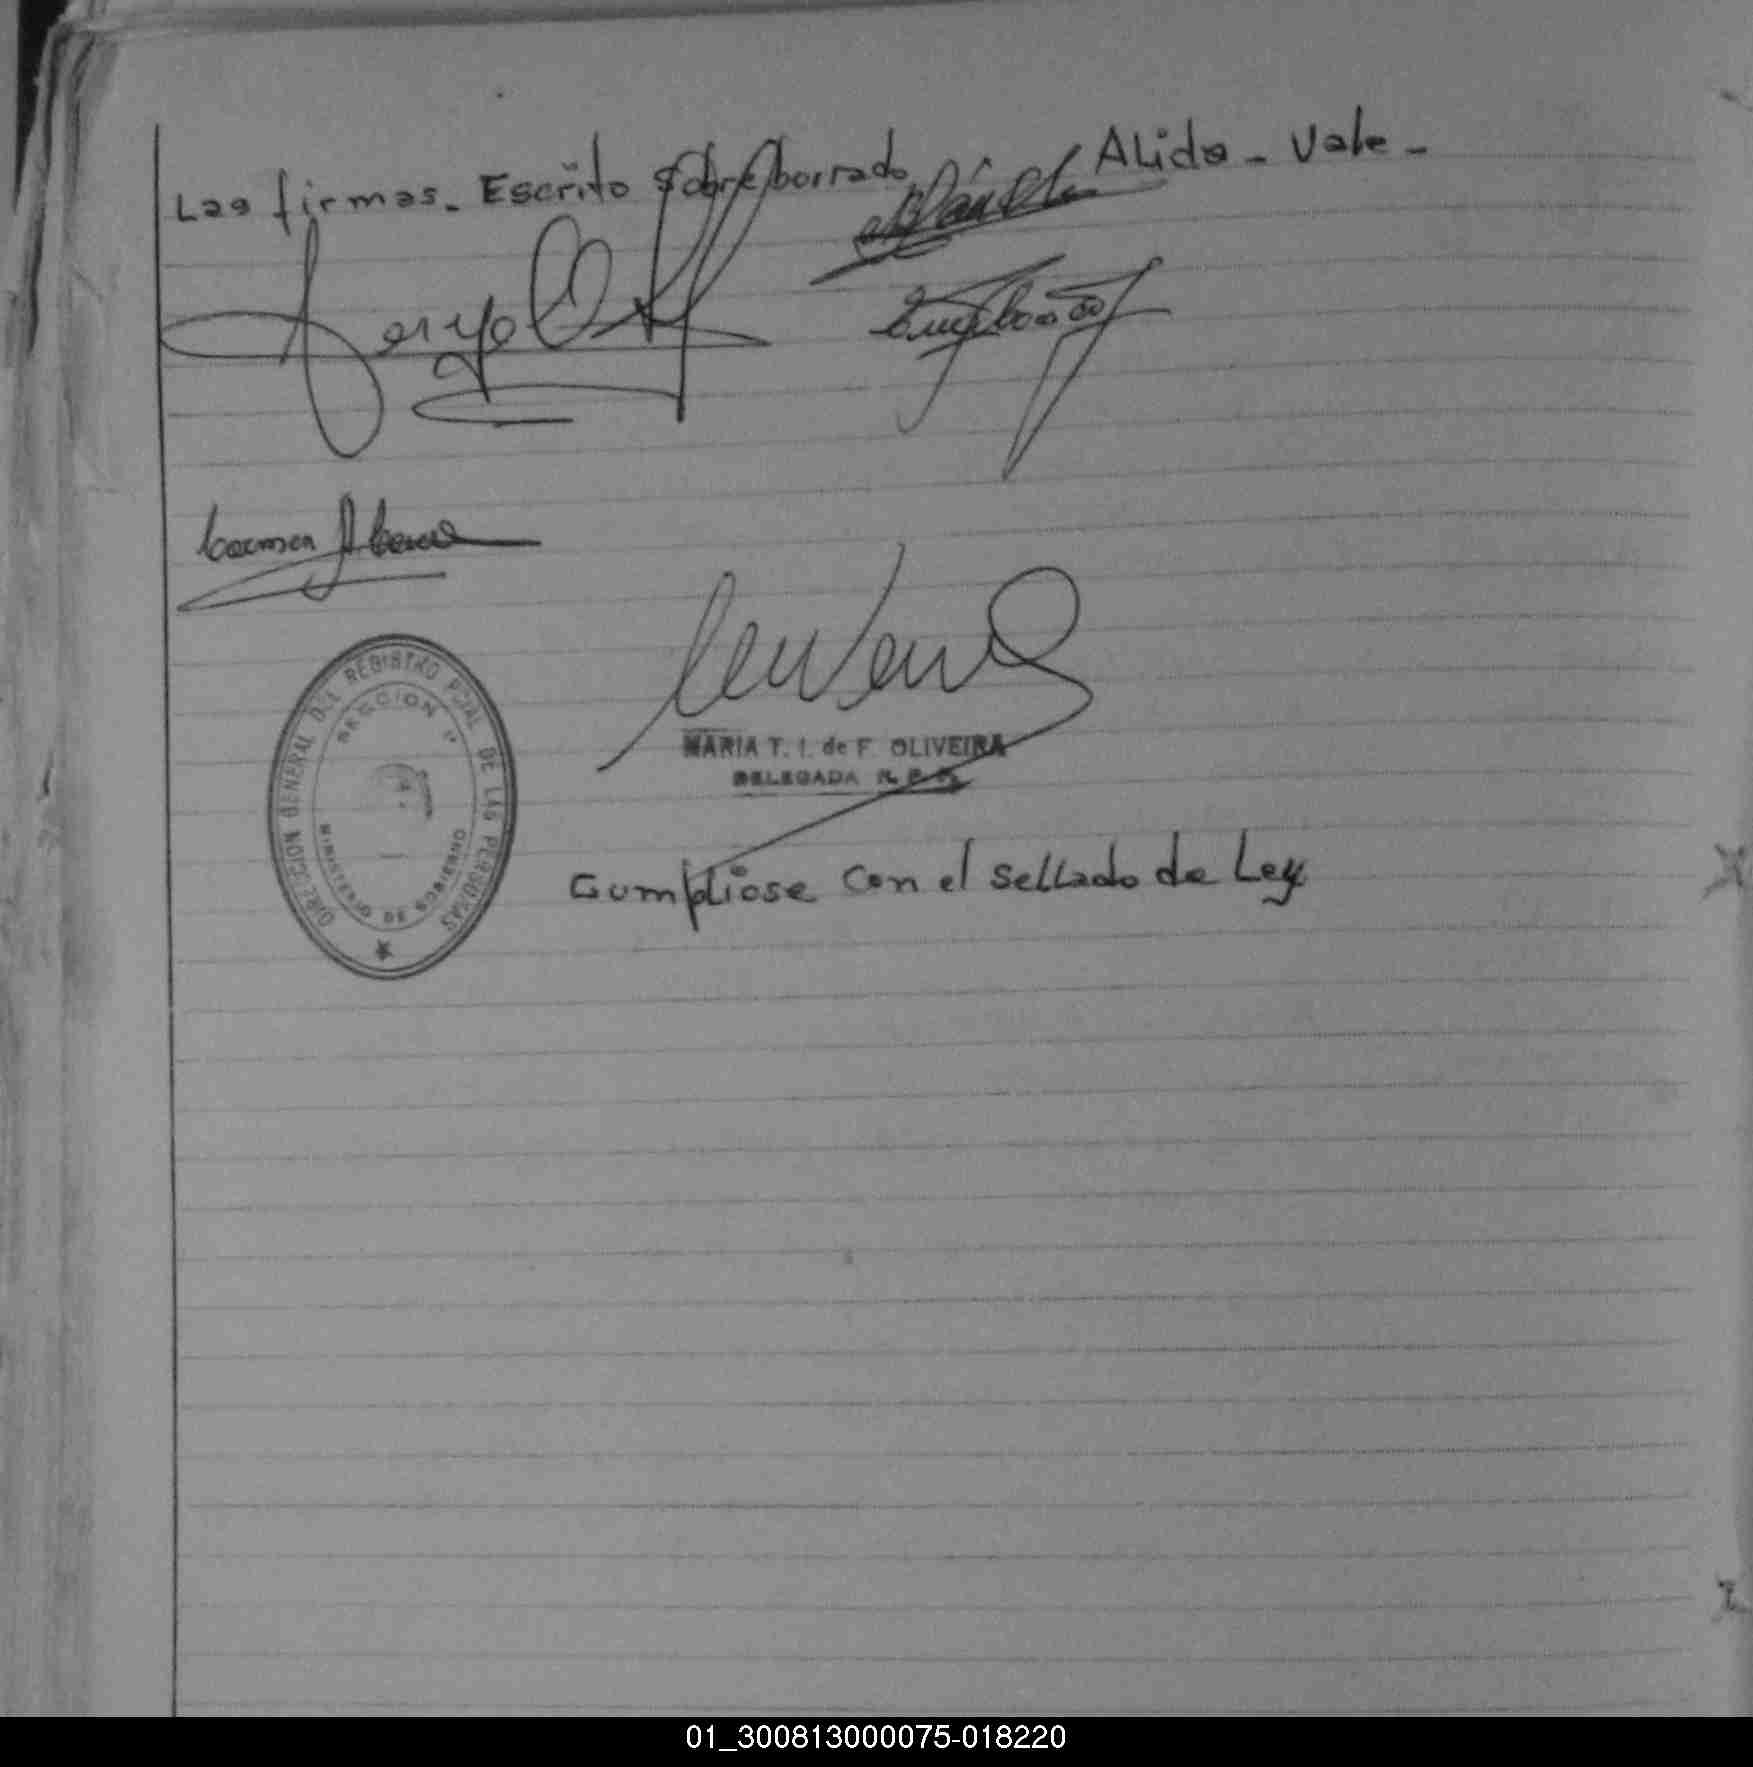 Las firmas. Escrito sobre borrado Alida - Vale -
Carmen
DIRECCION GENERAL DEL REGISTRO PCIAL DE LAS PERSONAS
SECCION
MINISTERIO DE GOBIERNO
MARIA T. I. de F. OLIVEIRA
DELEGADA R. P. P.
Cumpliose con el sellado de Ley
01_300813000075-018220